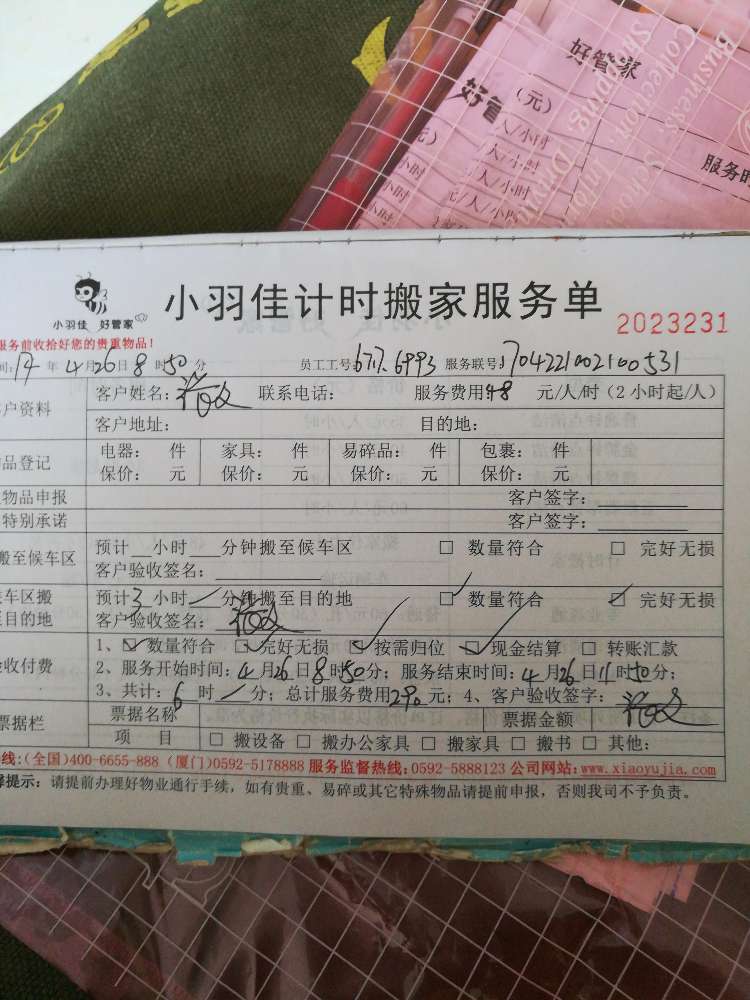 好管家
好管
(元)
人/小时
人/小时
人/小时
元/人/小时
服务时
Business
Collection
Shipping
小羽佳 好管家
小羽佳计时搬家服务单
2023231
服务前收拾好您的贵重物品!
间: 17 年 4 月 26 日 8 时 50 分 员工工号: 6717.6993 服务联号: J704221002100531
客户资料 客户姓名: 联系电话: 服务费用: 48 元/人/时(2小时起/人)
客户地址: 目的地:
品登记 电器: 件 家具: 件 易碎品: 件 包裹: 件
保价: 元 保价: 元 保价: 元 保价: 元
物品申报 客户签字:
特别承诺 客户签字:
搬至候车区 预计 小时 分钟搬至候车区 □ 数量符合 □ 完好无损
客户验收签名:
车区搬至目的地 预计 3 小时 / 分钟搬至目的地 ☑ 数量符合 ☑ 完好无损
客户验收签名:
验收付费 1、☑ 数量符合 ☑ 完好无损 ☑ 按需归位 ☑ 现金结算 □ 转账汇款
2、服务开始时间: 4 月 26 日 8 时 50 分; 服务结束时间: 4 月 26 日 11 时 50 分;
3、共计: 6 时 / 分; 总计服务费用 290 元; 4、客户验收签字:
票据栏 票据名称 票据金额
项 目 □ 搬设备 □ 搬办公家具 □ 搬家具 □ 搬书 □ 其他:
线:(全国)400-6655-888 (厦门)0592-5178888 服务监督热线:0592-5888123 公司网站:www.xiaoyujia.com
馨提示: 请提前办理好物业通行手续, 如有贵重、易碎或其它特殊物品请提前申报, 否则我司不予负责。